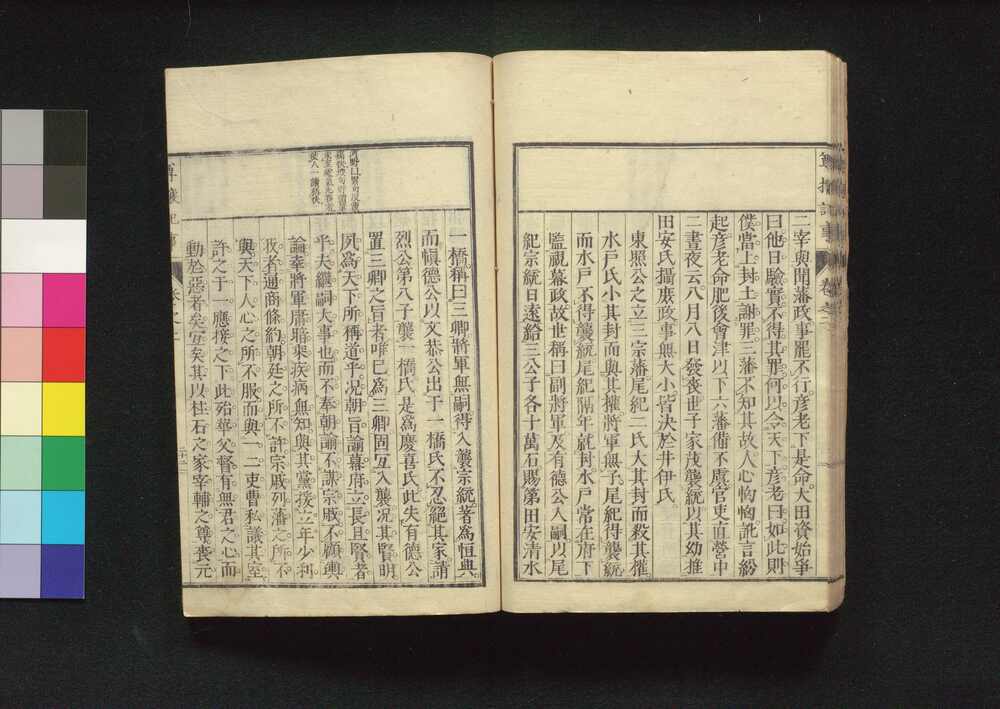 二宰與聞藩政事罷不行彥老下是命大田資始爭
曰他日驗實不得其罪何以令天下彥老曰如此則
僕當上封土謝罪三藩不知其故人心恟恟訛言紛
起彥老命肥後會津以下六藩備不虞官吏直營中
二晝夜云八月八日發喪世子家茂襲統以其幼推
田安氏攝廢政事無大小皆決於井伊氏
東照公之立三宗藩尾紀二氏大其封而殺其權
水戶氏小其封而與其權將軍無子尾紀得襲統
而水戶不得襲統尾紀隔年就封水戶常在府下
監視幕政故世稱曰副將軍及有德公入嗣以尾
紀宗統日遠給三公子各十萬石賜第田安清水
一橋稱曰三卿將軍無嗣得入襲宗統著為恒典
而愼德公以文恭公出于一橋氏不忍絕其家請
烈公第八子襲一橋氏是為慶喜氏此失有德公
置三卿之旨者唯已為三卿固宜入襲況其賢明
夙為天下所稱道乎況朝旨諭幕府立長且賢者
乎夫繼嗣大事也而不奉朝諭不謀宗戚不顧輿
論牽將軍屬暗柔疾病無知與其黨援立年少利
我者通商條約朝廷之所不許宗戚列藩之所不
與天下人心之所不服而與一二吏曹私議其室
許之于一應接之下此殆華父督有無君之心而
動於惡者矣宜矣其以柱石之家宰輔之尊喪元